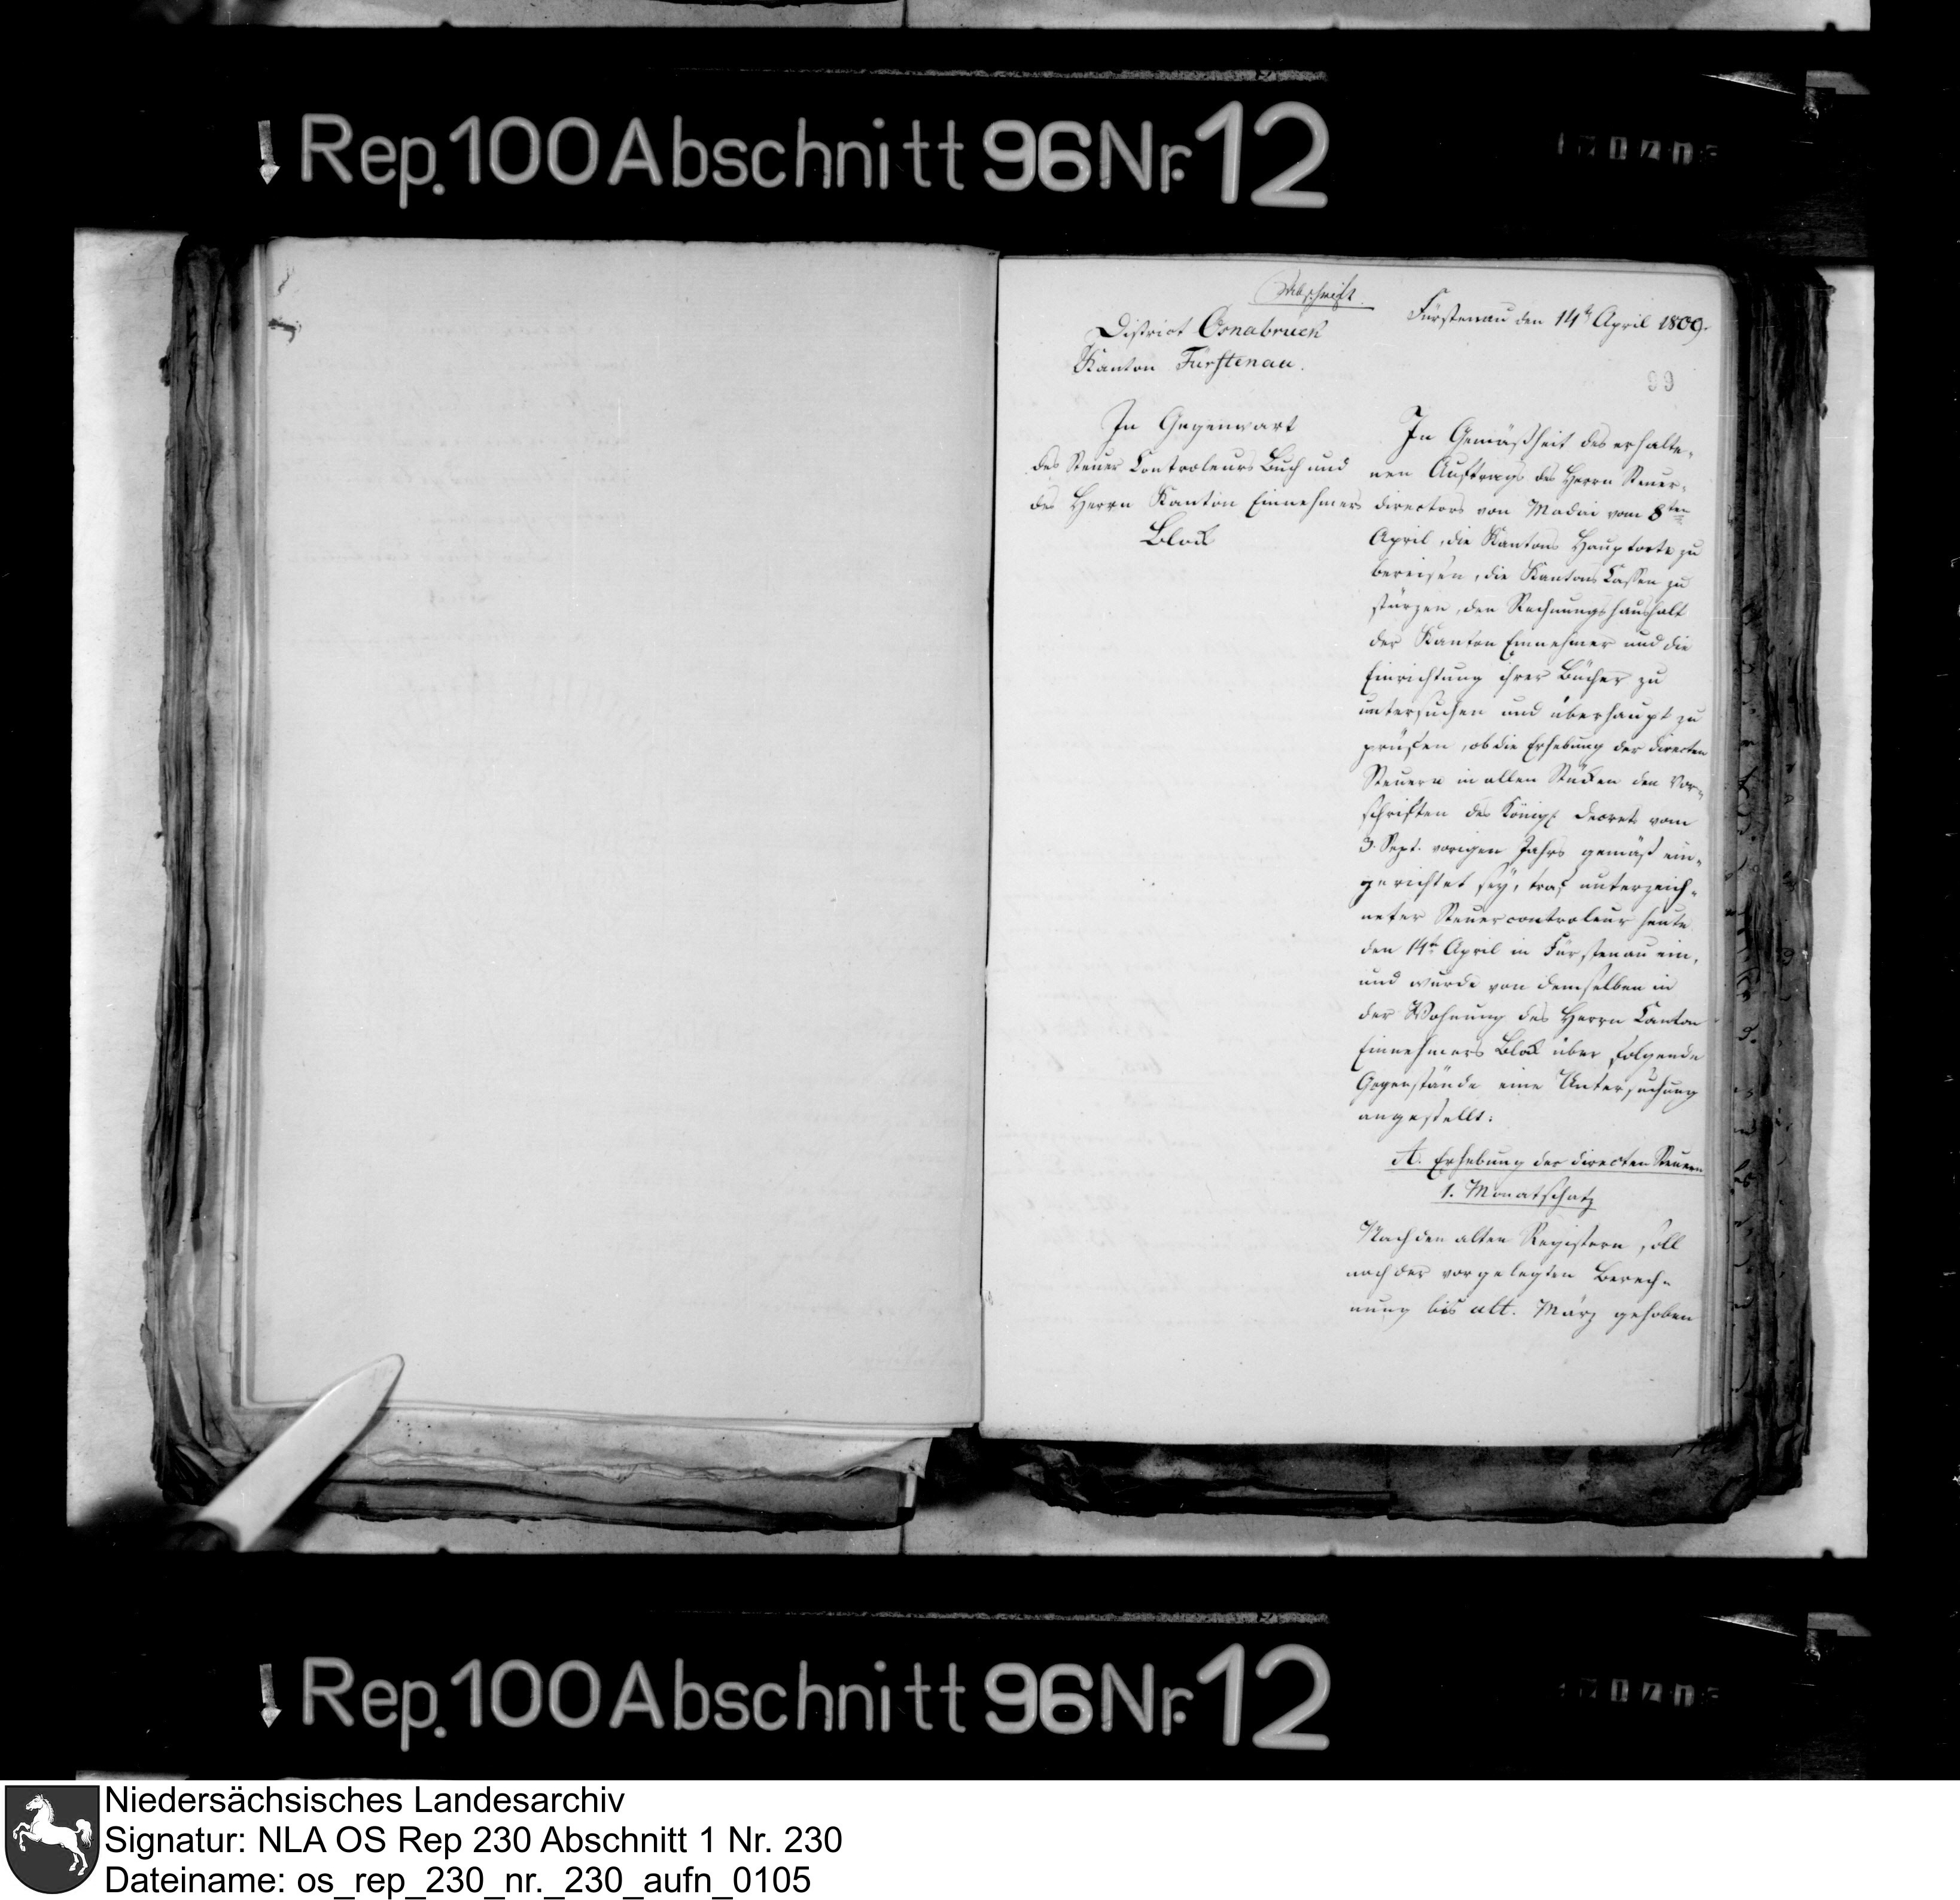 Rep. 100 Abschnitt 96 Nr. 12
Abschrift.
District Osnabruck
Kanton Fürstenau.
Fürstenau den 14t April 1809.
99
In Gegenwart
des Steuer Controleurs Buch und
des Herrn Kanton Einnehmers
Block
In Gemäßheit des erhalte-
nen Auftrags des Herrn Steuer-
directors von Madai vom 8ten
April, die Kantons Hauptorte zu
bereisen, die Kantons Cassen zu
stürzen, den Rechnungshaushalt
der Kanton Einnehmer und die
Einrichtung ihrer Bücher zu
untersuchen und überhaupt zu
prüfen, ob die Erhebung der directen
Steuern in allen Stücken den Vor-
schriften des Königl. Decrets vom
3. Sept. vorigen Jahrs gemäß ein-
gerichtet sey, traf unterzeich-
neter Steuercontroleur heute
den 14t April in Fürstenau ein,
und wurde von demselben in
der Wohnung des Herrn Canton
Einnehmers Block über folgende
Gegenstände eine Untersuchung
angestellt:
A. Erhebung der directen Steuern
1. Monatschatz
Nach den alten Registern soll
nach der vorgelegten Berech-
nung bis ult. März gehoben
Rep. 100 Abschnitt 96 Nr. 12
Niedersächsisches Landesarchiv
Signatur: NLA OS Rep 230 Abschnitt 1 Nr. 230
Dateiname: os_rep_230_nr._230_aufn_0105